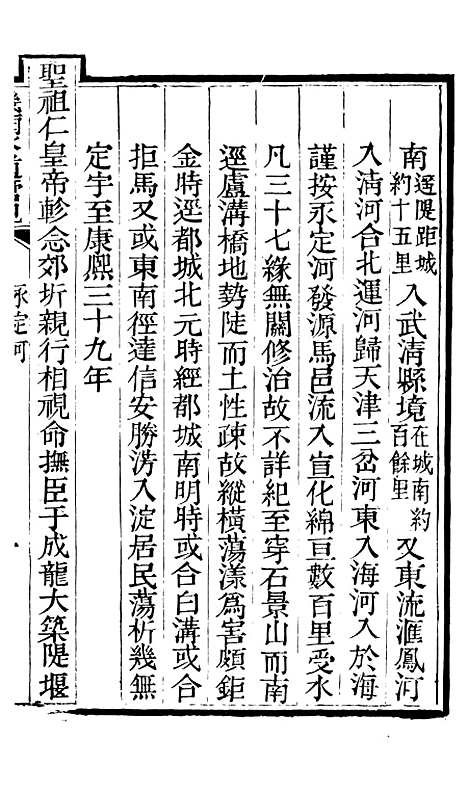 南遥隄距城約十五里入武清縣境在城南約百餘里又東流滙鳳河
入淸河合北運河歸天津三岔河東入海河入於海
謹按永定河發源馬邑流入宣化綿亘數百里受水
凡三十七緣無關修治故不詳紀至穿石景山而南
逕盧溝橋地勢陡而土性疎故縱橫蕩漾爲害頗鉅
金時逕都城北元時經都城南明時或合白溝或合
拒馬又或東南徑達信安勝淓入淀居民蕩析幾無
定宇至康熈三十九年
聖祖仁皇帝軫念郊圻親行相視命撫臣于成龍大築隄堰
永定河